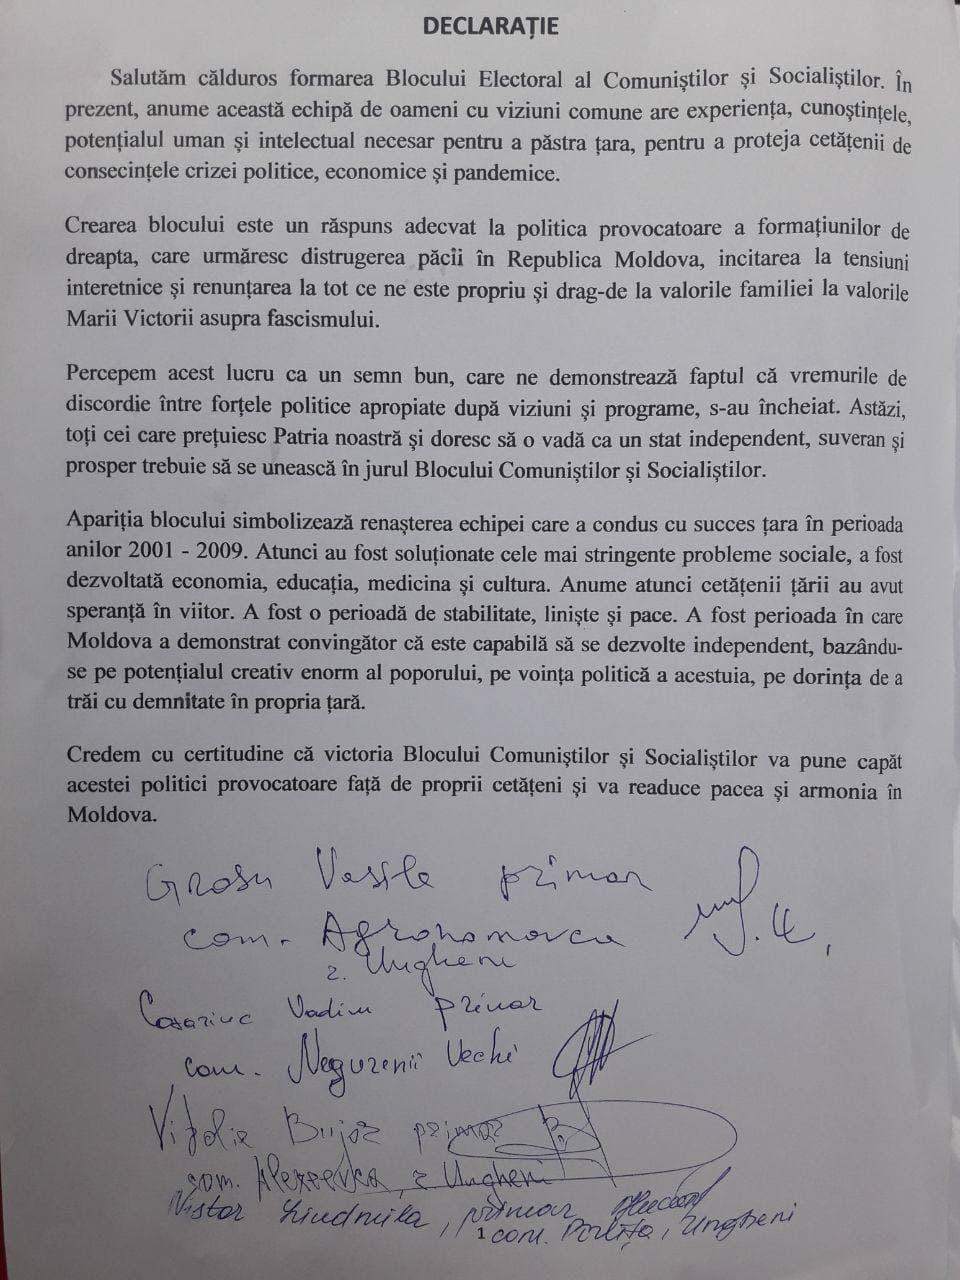 DECLARAȚIE
Salutăm călduros formarea Blocului Electoral al Comuniștilor și Socialiștilor. În
prezent, anume această echipă de oameni cu viziuni comune are experiența, cunoștințele,
potențialul uman și intelectual necesar pentru a păstra țara, pentru a proteja cetățenii de
consecințele crizei politice, economice și pandemice.
Crearea blocului este un răspuns adecvat la politica provocatoare a formațiunilor de
dreapta, care urmăresc distrugerea păcii în Republica Moldova, incitarea la tensiuni
interetnice și renunțarea la tot ce ne este propriu și drag-de la valorile familiei la valorile
Marii Victorii asupra fascismului.
Percepem acest lucru ca un semn bun, care ne demonstrează faptul că vremurile de
discordie între forțele politice apropiate după viziuni și programe, s-au încheiat. Astăzi,
toți cei care prețuiesc Patria noastră și doresc să o vadă ca un stat independent, suveran și
prosper trebuie să se unească în jurul Blocului Comuniștilor și Socialiștilor.
Apariția blocului simbolizează renașterea echipei care a condus cu succes țara în perioada
anilor 2001 - 2009. Atunci au fost soluționate cele mai stringente probleme sociale, a fost
dezvoltată economia, educația, medicina și cultura. Anume atunci cetățenii țării au avut
speranță în viitor. A fost o perioadă de stabilitate, liniște și pace. A fost perioada în care
Moldova a demonstrat convingător că este capabilă să se dezvolte independent, bazându-
se pe potențialul creativ enorm al poporului, pe voința politică a acestuia, pe dorința de a
trăi cu demnitate în propria țară.
Credem cu certitudine că victoria Blocului Comuniștilor și Socialiștilor va pune capăt
acestei politici provocatoare față de proprii cetățeni și va readuce pacea și armonia în
Moldova.
Grosu Vasile primar
com. Agronomovca
r. Ungheni
Vadim primar
com. Negurenii Vechi
Vitalie Bujor primar
com. Alexeevca, r Ungheni
Nistor Liudmila, primar
1 com. Pîrlița, Ungheni